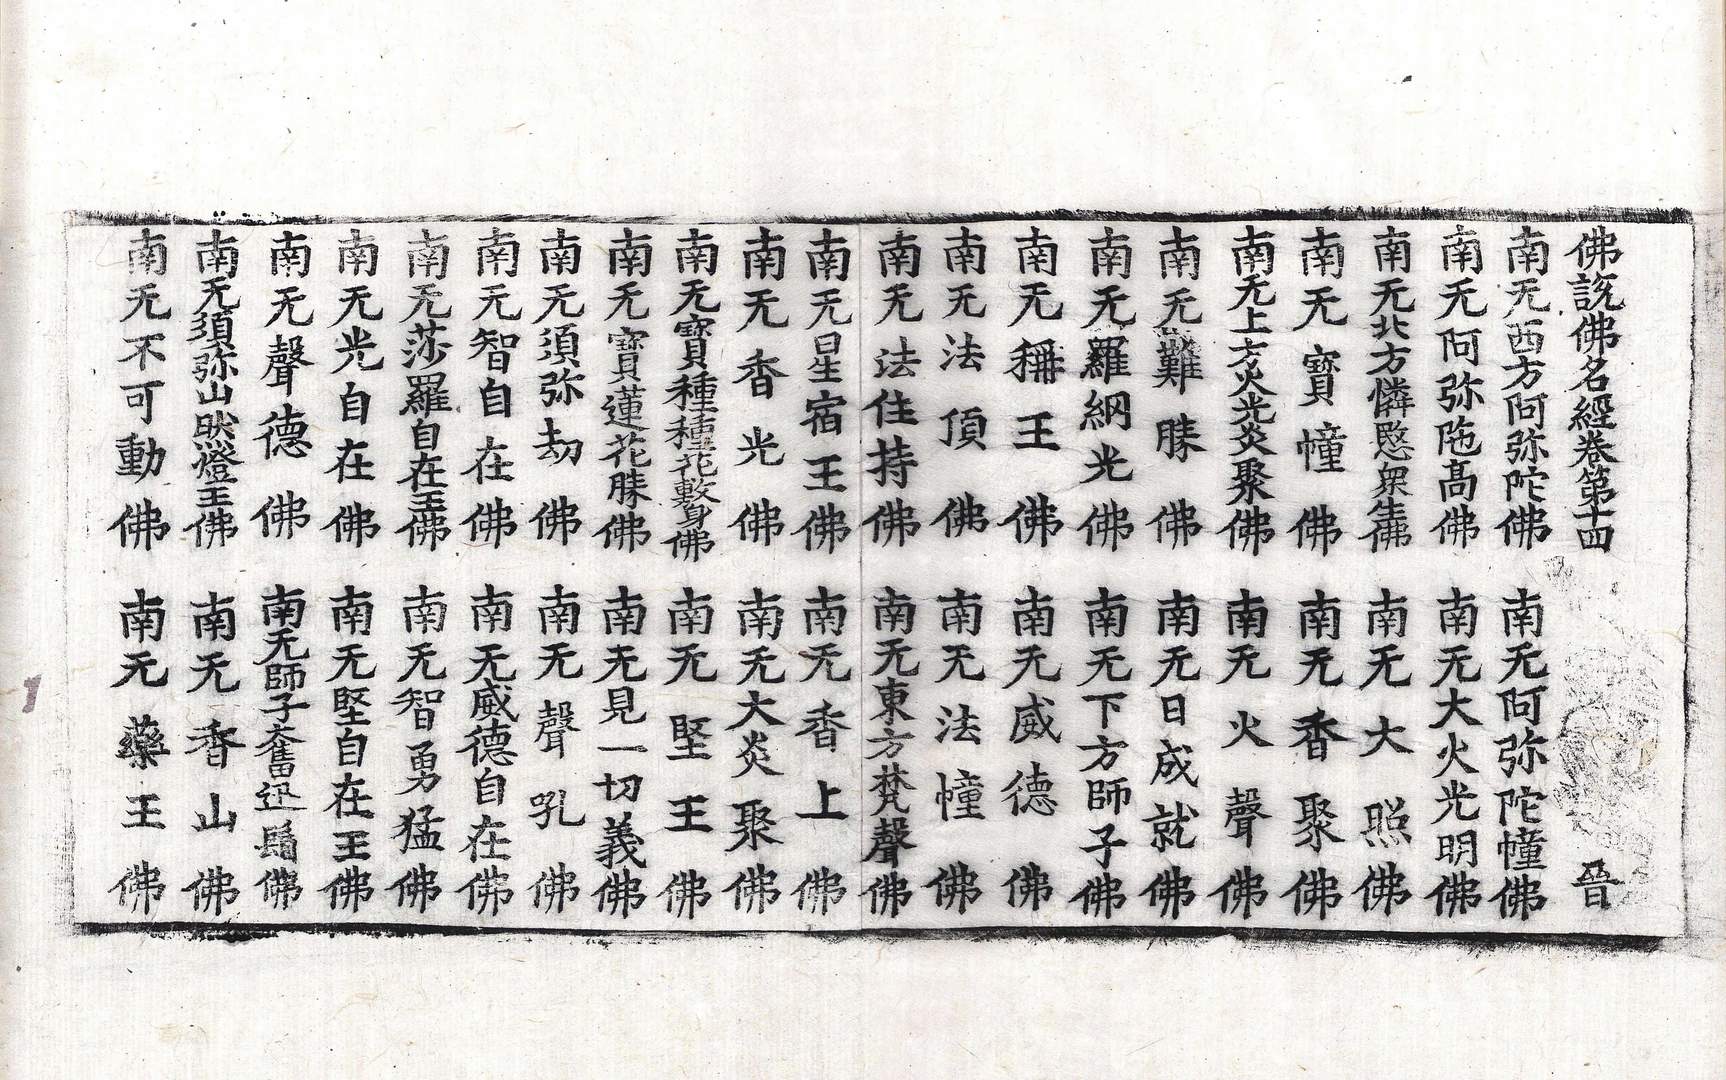 佛說佛名經卷第十四 晉
南无西方阿弥陀佛 南无阿弥陀幢佛
南无阿弥陁高佛 南无大火光明佛
南无北方憐愍衆生佛 南无大照佛
南无寶幢佛 南无香聚佛
南无上方火光炎聚佛 南无火聲佛
南无難勝佛 南无日成就佛
南无羅網光佛 南无下方師子佛
南无稱王佛 南无威德佛
南无法頂佛 南无法幢佛
南无法住持佛 南无東方梵聲佛
南无星宿王佛 南无香上佛
南无香光佛 南无大炎聚佛
南无寶種種花敷身佛 南无堅王佛
南无寶蓮花勝佛 南无見一切義佛
南无須弥劫佛 南无聲吼佛
南无智自在佛 南无威德自在佛
南无莎羅自在王佛 南无智勇猛佛
南无光自在佛 南无堅自在王佛
南无聲德佛 南无師子奮迅佛
南无須弥山然燈王佛 南无香山佛
南无不可動佛 南无藥王佛
1